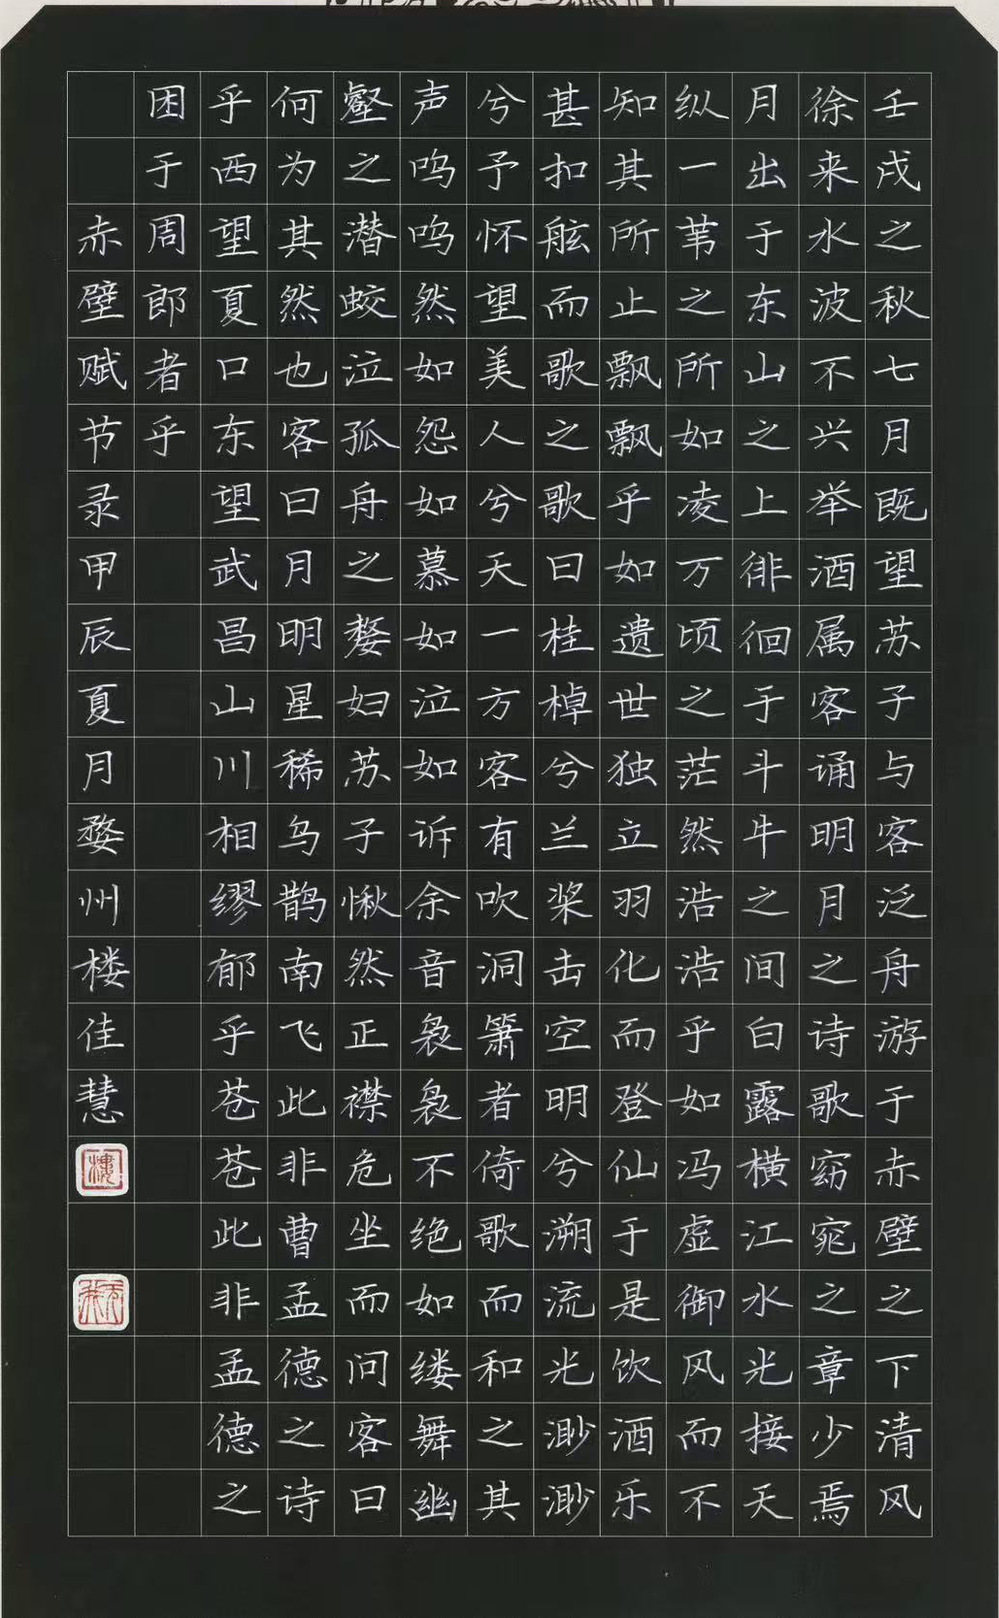 壬戌之秋七月既望苏子与客泛舟游于赤壁之下清风
徐来水波不兴举酒属客诵明月之诗歌窈窕之章少焉
月出于东山之上徘徊于斗牛之间白露横江水光接天
纵一苇之所如凌万顷之茫然浩浩乎如冯虚御风而不
知其所止飘飘乎如遗世独立羽化而登仙于是饮酒乐
甚扣舷而歌之歌曰桂棹兮兰桨击空明兮溯流光渺渺
兮予怀望美人兮天一方客有吹洞箫者倚歌而和之其
声呜呜然如怨如慕如泣如诉余音袅袅不绝如缕舞幽
壑之潜蛟泣孤舟之嫠妇苏子愀然正襟危坐而问客曰
何为其然也客曰月明星稀乌鹊南飞此非曹孟德之诗
乎西望夏口东望武昌山川相缪郁乎苍苍此非孟德之
困于周郎者乎
赤壁赋节录甲辰夏月婺州楼佳慧